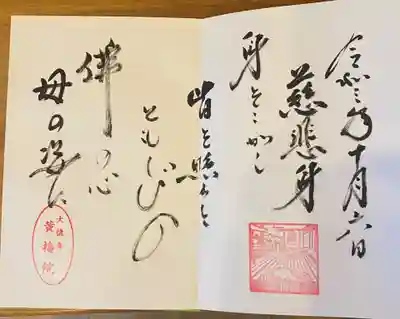 令和三年十月六日
慈悲身
身をこがし
皆を照らす
ともしびの
佛の心
母の姿に
大徳寺
黄梅院